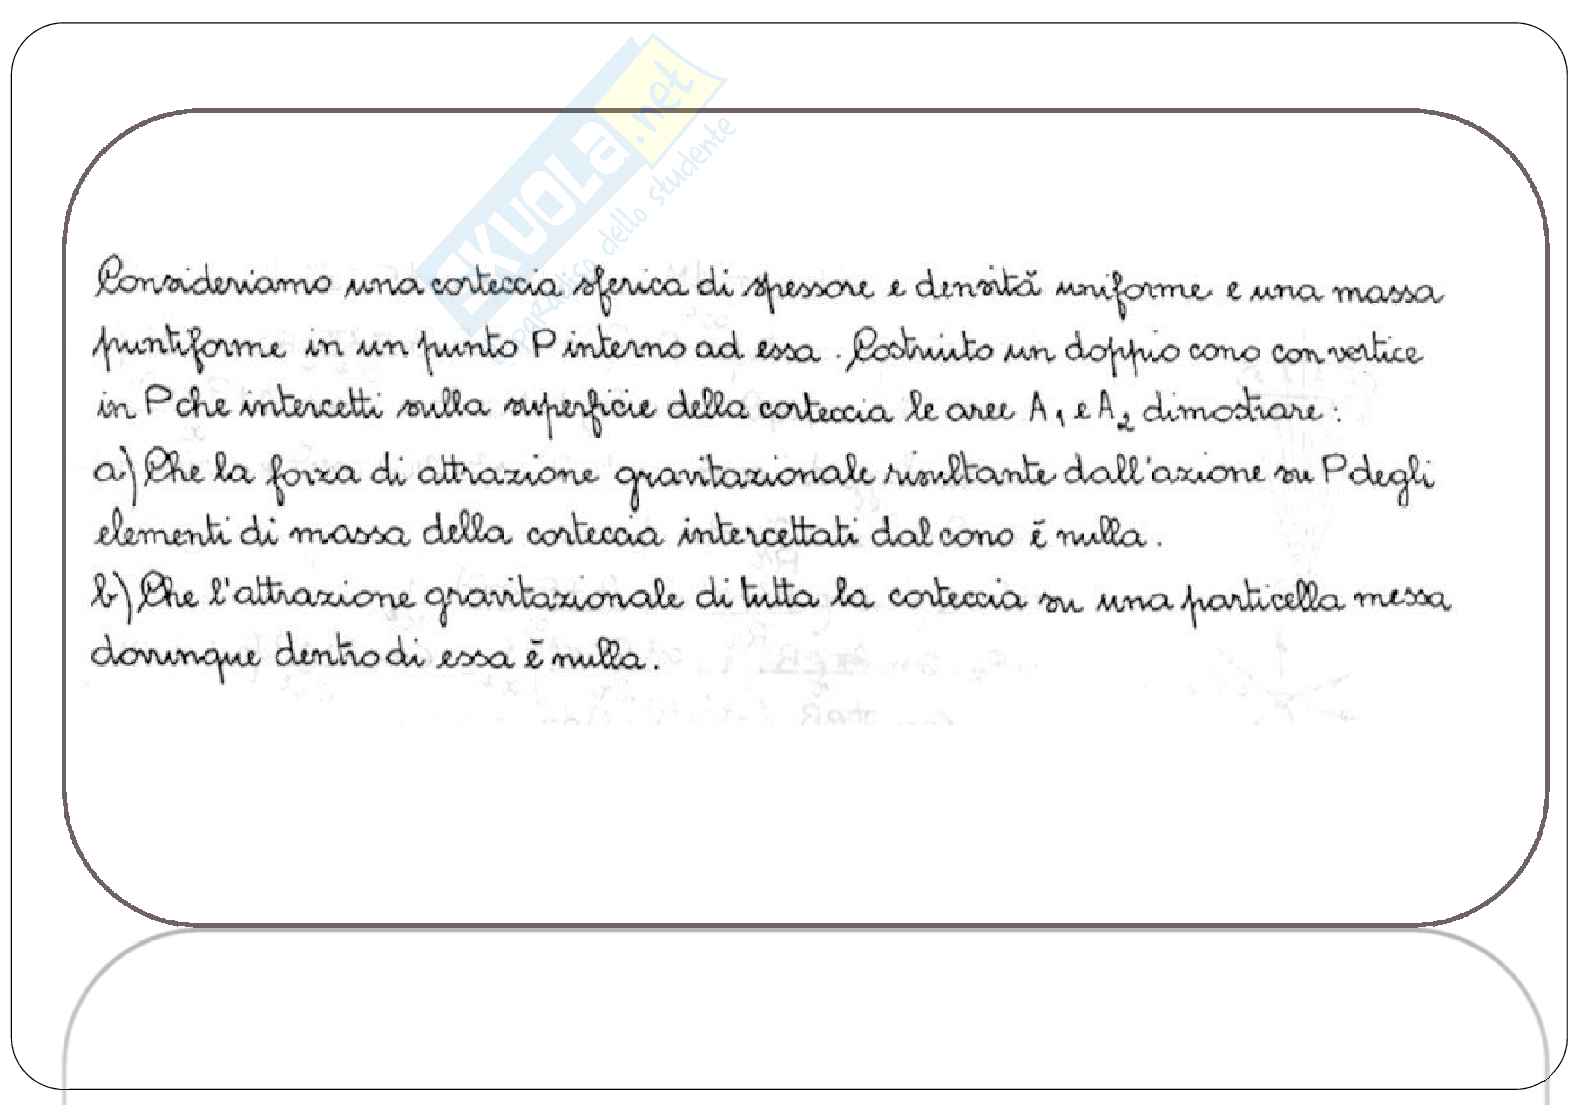 SKUOLA.net
paradiso dello studente
Consideriamo una corteccia sferica di spessore e densità uniforme e una massa
puntiforme in un punto P interno ad essa. Costruito un doppio cono con vertice
in P che intercetti sulla superficie della corteccia le aree A₁ e A₂ dimostrare:
a) Che la forza di attrazione gravitazionale risultante dall'azione su P degli
elementi di massa della corteccia intercettati dal cono è nulla.
b) Che l'attrazione gravitazionale di tutta la corteccia su una particella messa
dovunque dentro di essa è nulla.